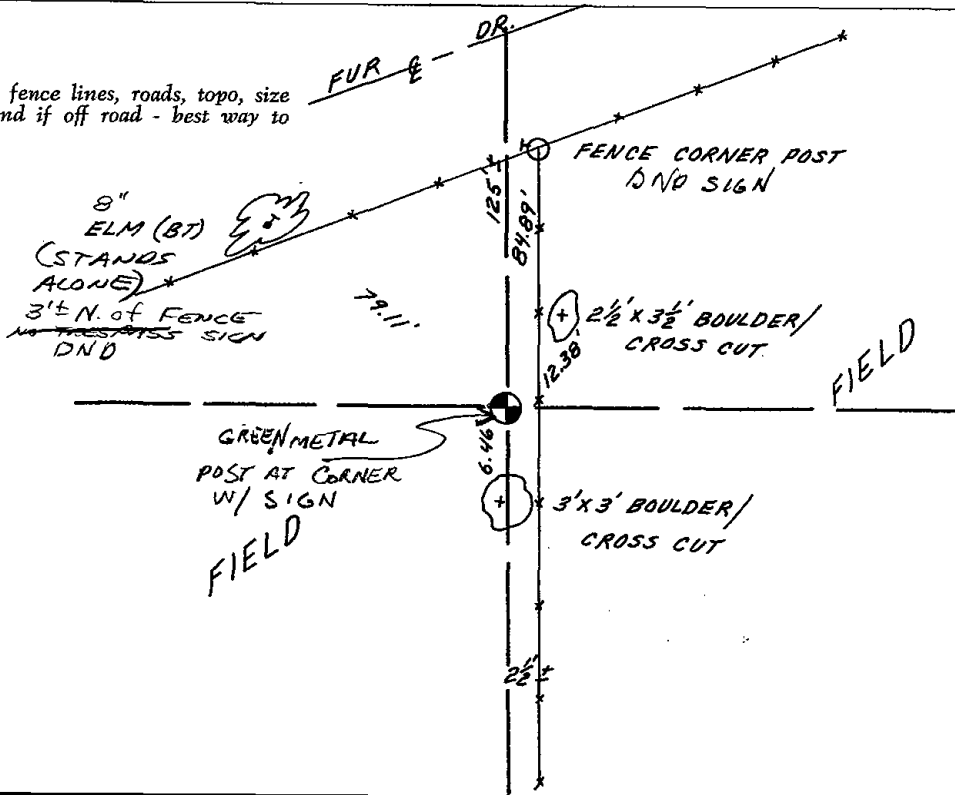 DR.
FUR ℄
fence lines, roads, topo, size
nd if off road - best way to
FENCE CORNER POST
DND SIGN
8"
ELM (BT)
(STANDS
ALONE)
3'± N. of FENCE
SIGN
DND
125'±
84.89'
79.11'
2½' X 3½' BOULDER/
CROSS CUT
12.38'
FIELD
GREEN METAL
POST AT CORNER
W/ SIGN
6.46'
3' X 3' BOULDER/
CROSS CUT
FIELD
2½'±